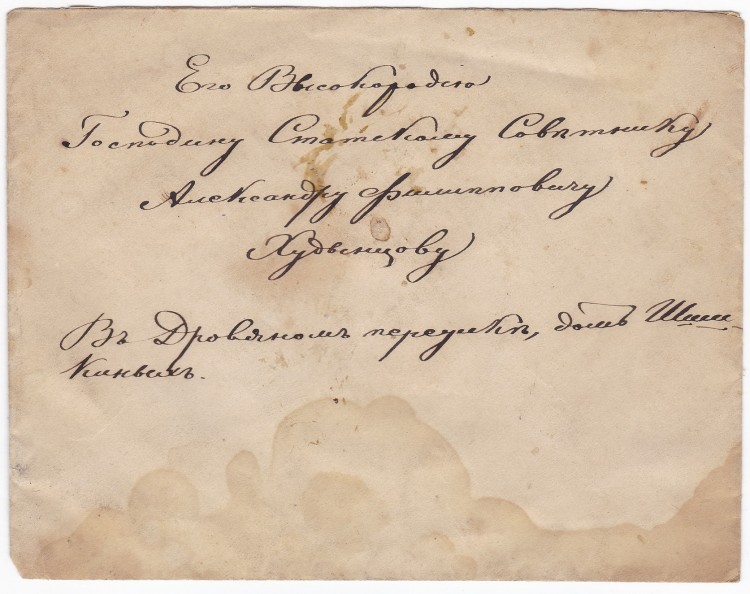 Его Высокородію
Господину Статскому Совѣтнику
Александру Филипповичу
Худынцову
Въ Дровяномъ переулкѣ, домъ Шиш-
киныхъ.